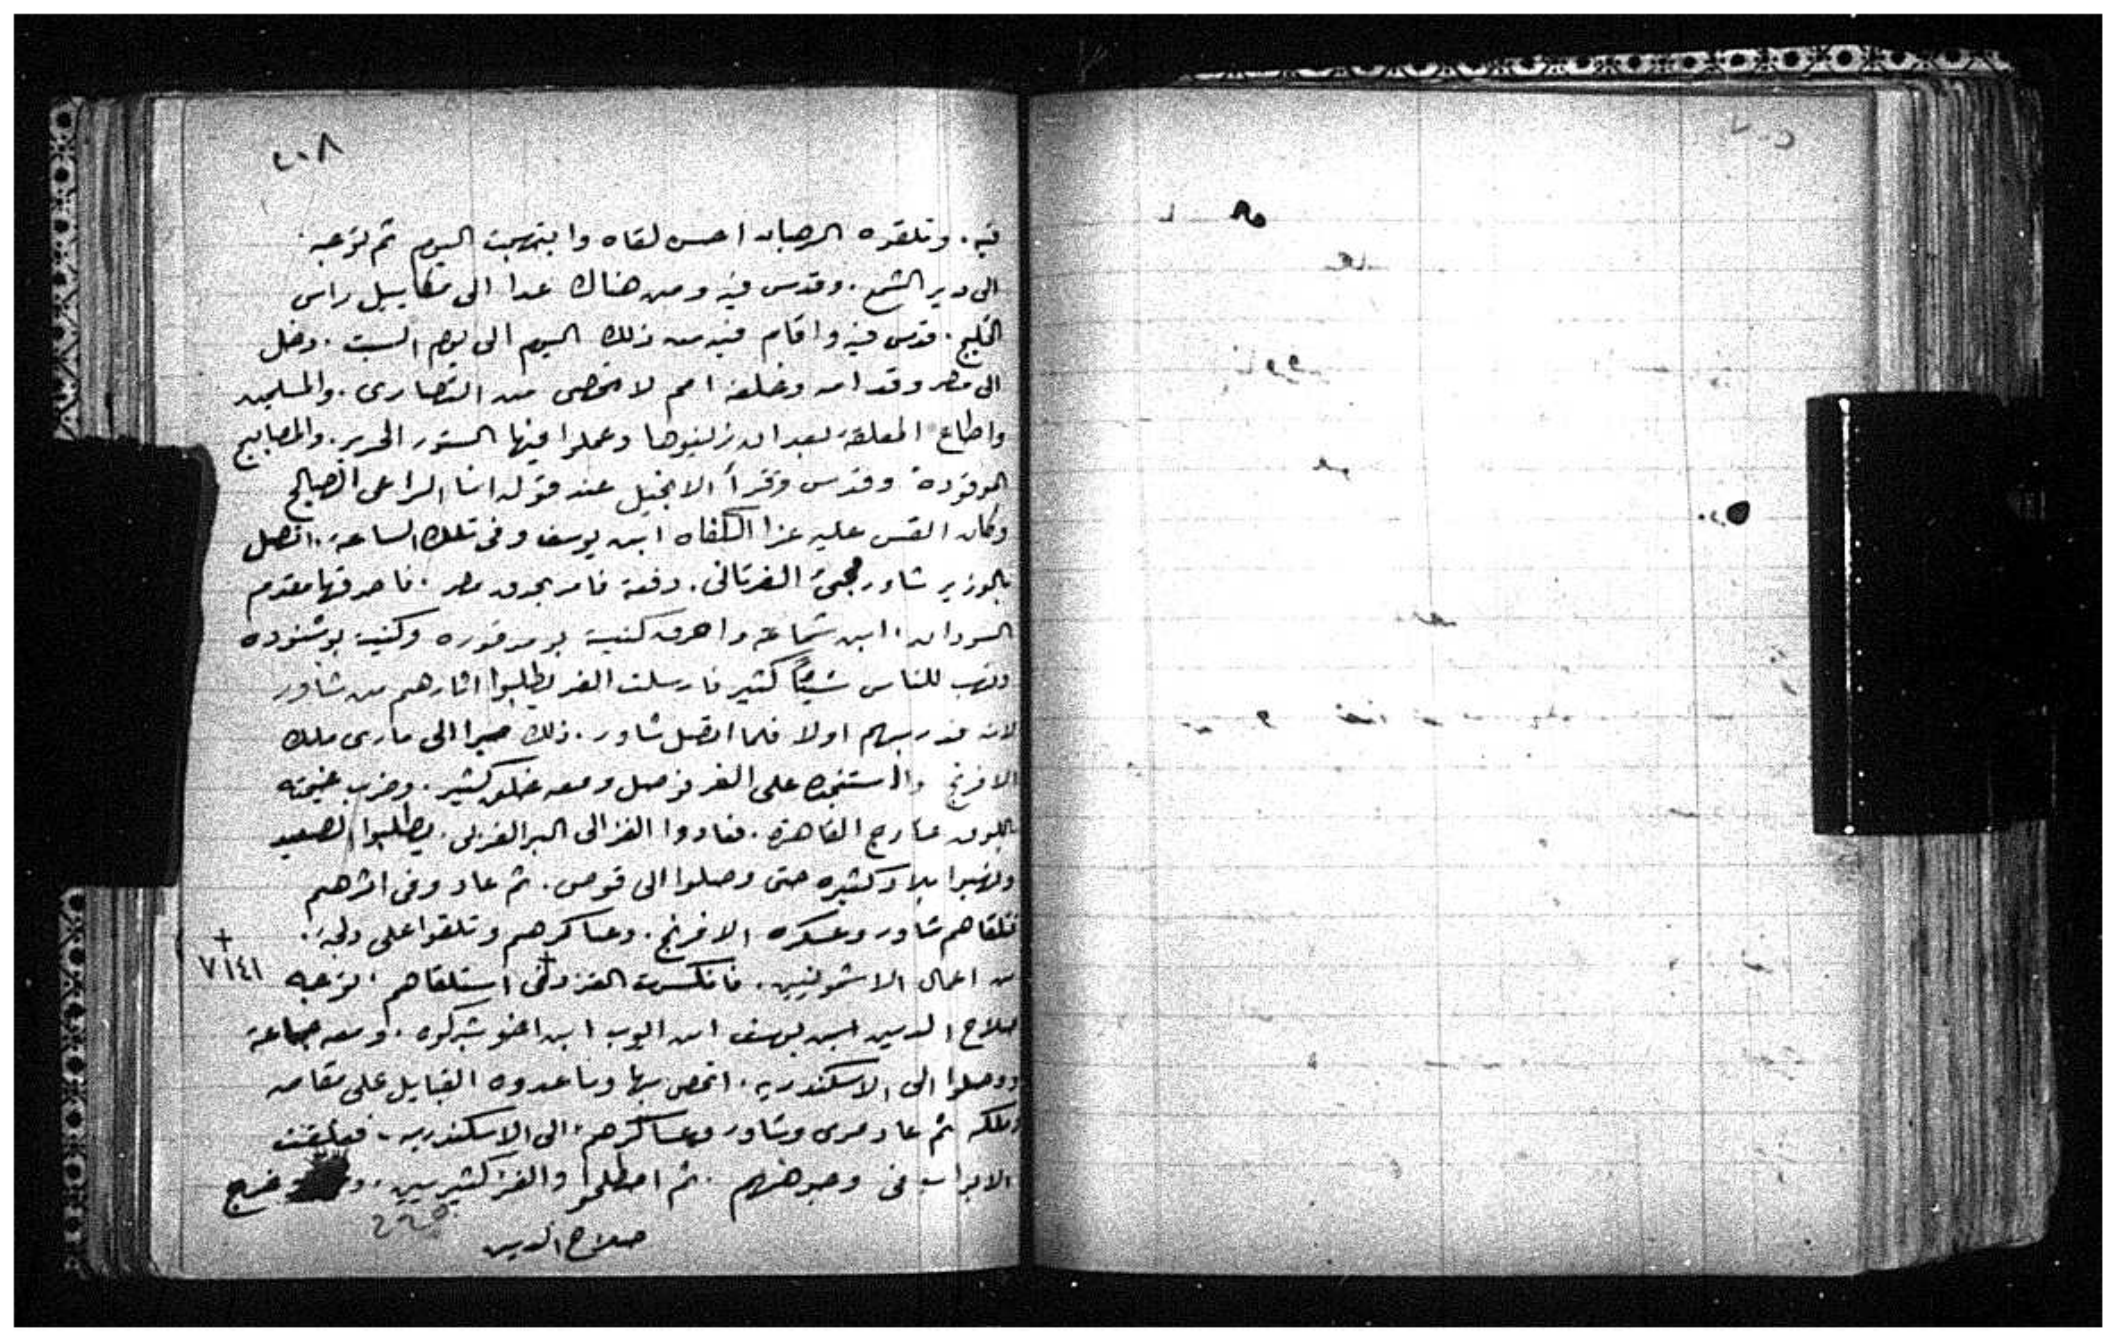 ٢٠٨
فيه. وتلقوه الرهبان احسن لقاه وابتهجت اليوم ثم توجه
الى دير الشمع. وقدس فيه ومن هناك عدا الى مقابيل راس
الخليج. قدس فيه واقام فيه من ذلك اليوم الى يوم السبت. دخل
الى مصر وقدامه وخلفه امم لا تحصى من النصارى. والمسلمين
واطاع المعلقة بعد ان زلينوها وعملوا فيها الستور الحرير. والمصابيح
الموقودة وقدس وقرأ الانجيل عند قوله انا الراعى الصالح
وكان القس عليه عزا الكفاه ابن يوسف وفى تلك الساعة. اتصل
بالوزير شاور مجئ الغز ثانى. دفعة فامر بحرق مصر. فاحرقها مقدم
السودان، ابن شماعة واحرق كنيسة بو مرقوره وكنيسة بو شنوده
ونهب للناس شيئاً كثير فارسلت الغز يطلبوا اثارهم من شاور
لانه ضد ربهم اولا فلما اتصل شاور. ذلك صيرا الى مارى ملك
الافرنج واستنجده على الغز فوصل ومعه خلق كثير. وضرب خيمته
باللوق خارج القاهرة. فعادوا الغز الى البر الغربى. يطلبوا الصعيد
ونهبوا بلاد كثيره حتى وصلوا الى قوص. ثم عاد وفى اثرهم
فتلقاهم شاور وعسكره الافرنج. وعساكرهم وتلقوا على دلجة.
من اعمال الاشمونين. فانكسرت الغز وفى استلقاهم توجه + ٧١٤١
صلاح الدين ابن يوسف ابن ايوب ابن اخو شيركوه. ومعه جماعة
ووصلوا الى الاسكندريه. اتحصن بها وساعدوه القبايل على مقامه
وملكه ثم عاد مرى وشاور وعساكرهم الى الاسكندريه. فغلقت
الابواب فى وجوههم. ثم اصطلحوا والغز كثيرين. وخرج
صلاح الدين